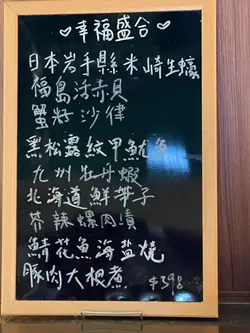 ♥幸福盛合♥
日本岩手縣米崎生蠔
福島活赤貝
蟹籽沙律
黑松露紋甲魷魚
九州牡丹蝦
北海道鮮帶子
芥辣螺肉漬
鯖花魚海盐燒
豚肉大根煮
$398